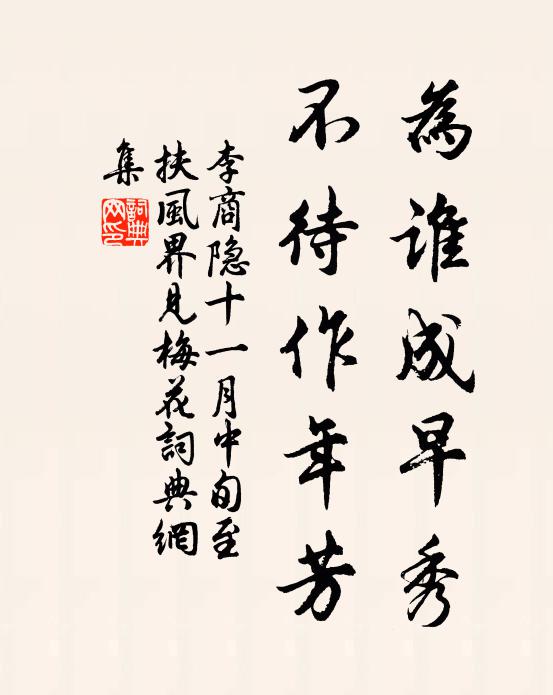 為誰成早秀
不待作年芳
李商隐十一月中旬至
扶風界見梅花詞典網
集
詞典
网印